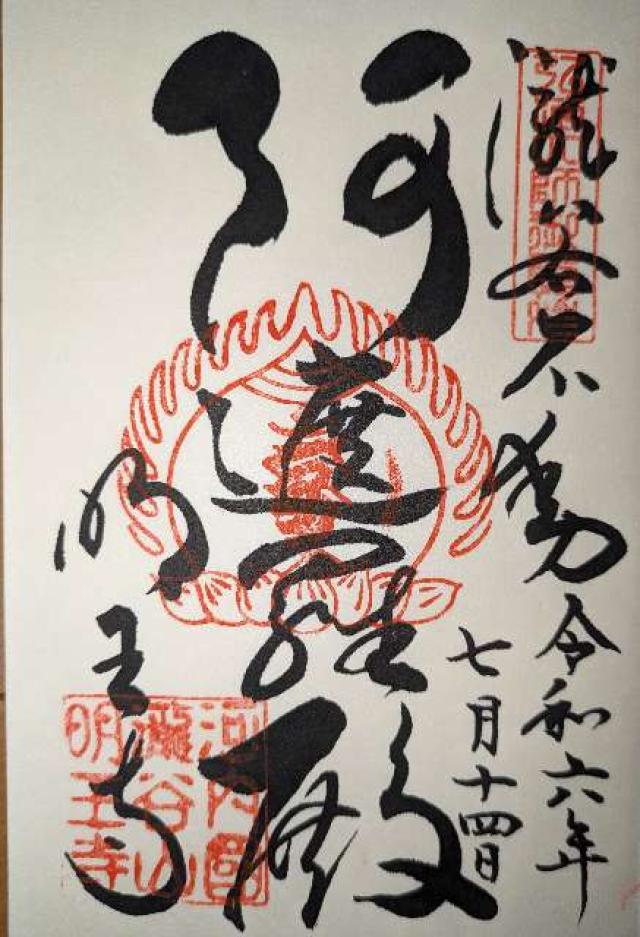 瀧谷不動
令和六年
七月十四日
阿遮羅殿
明王寺
河内國
瀧谷山
明王寺